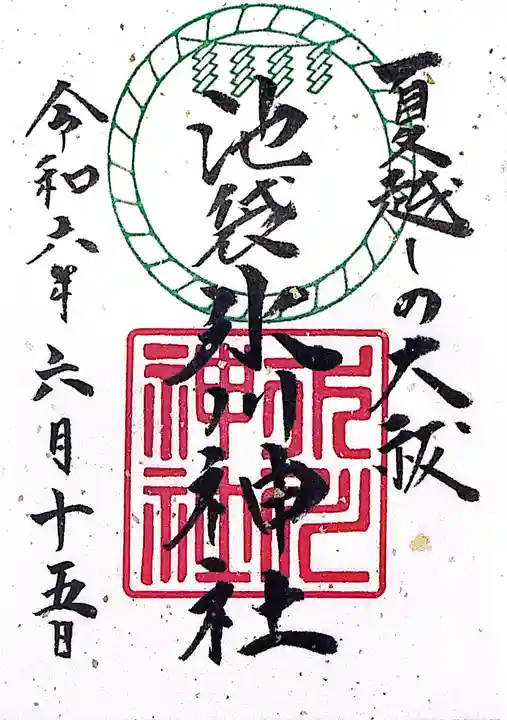 夏越しの大祓
池袋氷川神社
令和六年六月十五日
氷川
神社